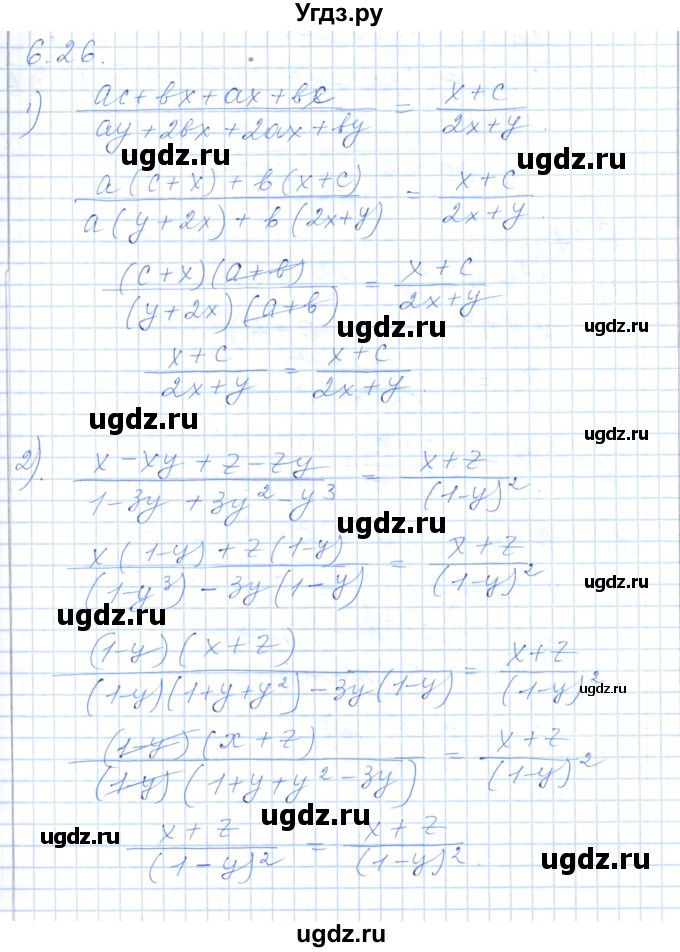 Угдз.ру
6.26.
1) (ac+bx+ax+bc)/(ay+2bx+2ax+by) = (x+c)/(2x+y).
ugdz.ru ugdz.ru
(a(c+x)+b(x+c))/(a(y+2x)+b(2x+y)) = (x+c)/(2x+y).
ugdz.ru ugdz.ru
((c+x)(a+b))/((y+2x)(a+b)) = (x+c)/(2x+y)
ugdz.ru ugdz.ru
(x+c)/(2x+y) = (x+c)/(2x+y).
ugdz.ru ugdz.ru
2). (x-xy+z-zy)/(1-3y+3y²-y³) = (x+z)/(1-y)².
ugdz.ru
(x(1-y)+z(1-y))/((1-y³)-3y(1-y)) = (x+z)/(1-y)².
ugdz.ru ugdz.ru
((1-y)(x+z))/((1-y)(1+y+y²)-3y(1-y)) = (x+z)/(1-y)²
ugdz.ru
((1-y)(x+z))/((1-y)(1+y+y²-3y)) = (x+z)/(1-y)²
ugdz.ru ugdz.ru
(x+z)/(1-y)² = (x+z)/(1-y)².
ugdz.ru